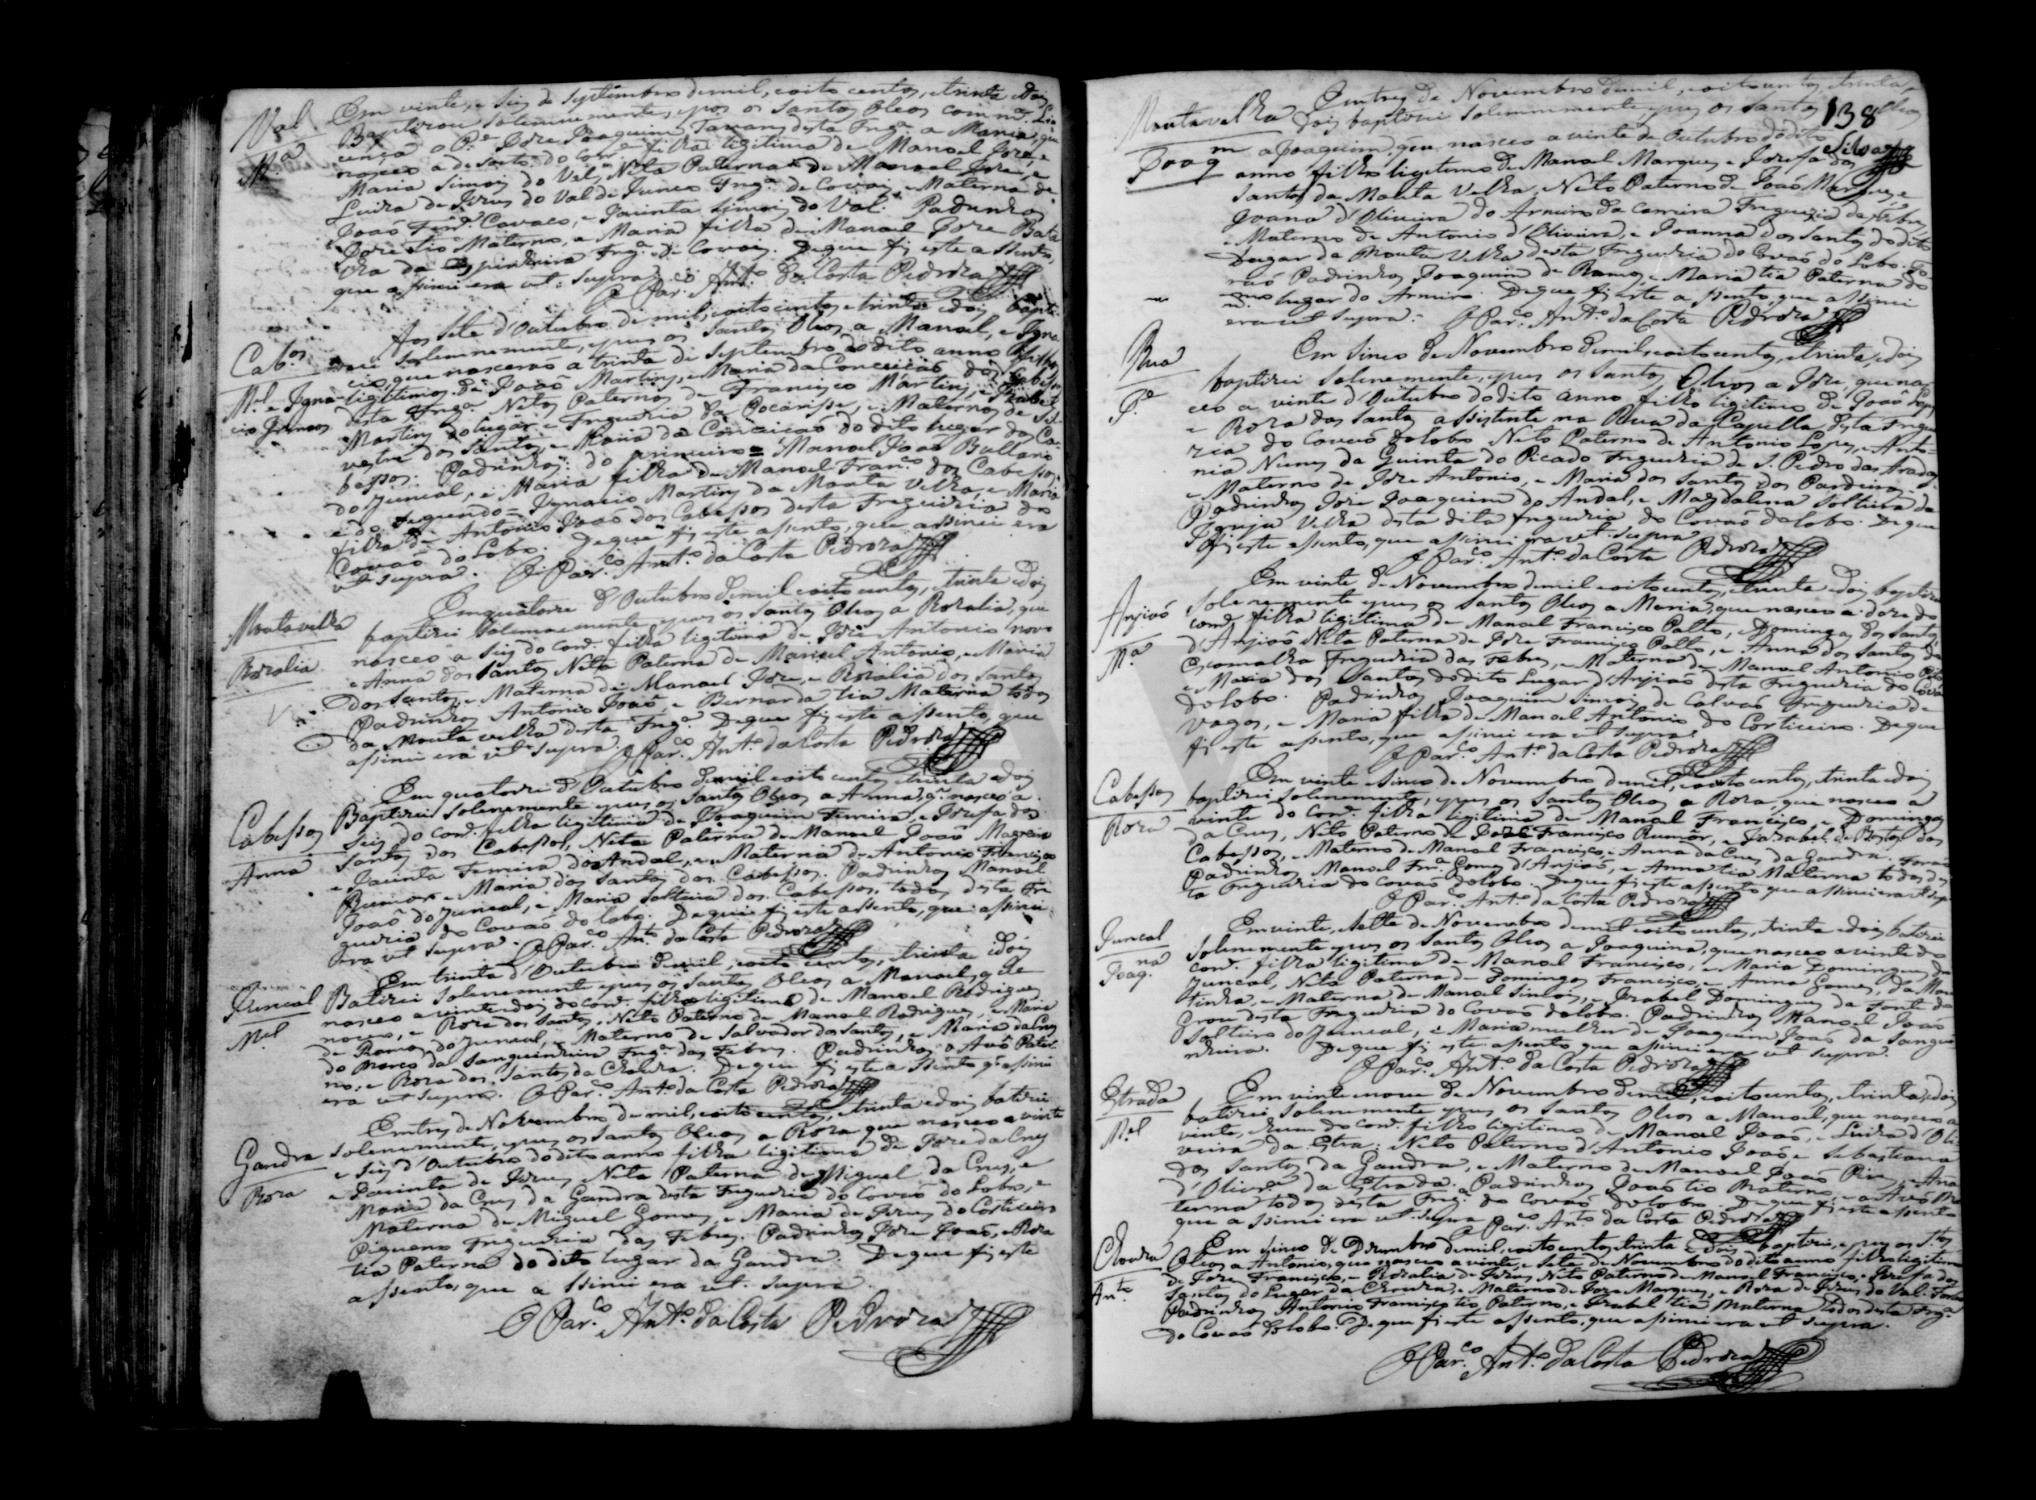 Val
Mª
Em vinte, e seis de Septembro de mil, e oito centos, e trinta e dois
Baptizou solemnemente, e pos os Santos Oleos com mª. Li
cença o Pe. Joze Joaquim Tavares desta Frgª. a Maria, que
nasceo a de sorte do Corr.e filha legitima de Manoel Joze, e
Maria Simois do Val, Neta Paterna de Manoel Joze, e
Luiza de Jezus do Val de Junco Frgª. de Covois, e Materna de
João Frz. Cavaco, e Jacinta Simois do Val. Padrinhos
Joze tio Materno, e Maria filha de Manoel Joze Bata
lha da Espinheira Frgª. de Covois. De que fiz este assento,
que assinei era ut supra.
O Par.co Ant.o da Costa Pedroza
Cab.os
M.el e Igna
cio Gemeos
Aos sete d'Outubro de mil, e oito centos, e trinta e dois bapti
zei solemnemente, e pus os Santos Oleos a Manoel, e Igna
cio, que nascerão a trinta de Septembro do dito anno filhos
legitimos de João Martins, e Maria da Conceição dos Cabeços
desta Frgª. Netos Paternos de Francisco Martins, e Izabel
Martins do lugar e Freguezia da Pocariça, e Maternos de Sil
vestre dos Santos, e Maria da Conceição do dito lugar dos Ca
bessos. Padrinhos: do primeiro = Manoel João Balseiro
do Juncal, e Maria filha de Manoel Fran.co dos Cabessos,
e do segundo = Ignacio Martins da Mouta Velha, e Maria
filha de Antonio João dos Cabessos desta Freguezia do
Covão do Lobo. De que fiz este assento, que assinei era
ut supra. O Par.co Ant.o da Costa Pedroza
Moutavelha
Rozalia
Em quatorze d'Outubro de mil e oito centos, e trinta e dois
baptizei solemnemente, e pus os Santos Oleos a Rozalia, que
nasceo a seis do corr.e filha legitima de Joze Antonio novo
e Anna dos Santos Neta Paterna de Manoel Antonio, e Maria
dos Santos, e Materna de Manoel Joze, e Rozalia dos Santos
Padrinhos Antonio João, e Bernarda tia Materna todos
da Mouta velha desta Frgª. De que fiz este assento, que
assinei era ut supra. O Par.co Ant.o da Costa Pedroza
Cabessos
Anna
Em quatorze d'Outubro de mil e oito centos, e trinta e dois
Baptizei solemnemente e pus os Santos Oleos a Anna, q. nasceo a
seis do corr.e filha legitima de Joaquim Ferreira, e Jozefa dos
Santos dos Cabessos, Neta Paterna de Manoel João Magreiro
e Jacinta Ferreira do Andal, e Materna de Antonio Francisco
Rumor e Maria dos Santos dos Cabessos. Padrinhos Manoel
João do Juncal, e Maria solteira dos Cabessos, todos desta Fre
guezia do Covão do Lobo. De que fiz este assento, que assinei
era ut supra. O Par.co Ant.o da Costa Pedroza
Juncal
M.el
Em trinta d'Outubro de mil e oito centos, e trinta e dois
Batizei solemnemente e pus os Santos Oleos a Manoel, que
nasceo a vinte dois do corr.e filho legitimo de Manoel Rodrigues
novo, e Roza dos Santos, Neto Paterno de Manoel Rodrigues, e Maria
de Ramos do Juncal, e Materno de Salvador dos Santos, e Maria da Cruz
do Marco da Sanguinheira Frgª. das Febres. Padrinhos o Avô Pater
no; e Roza dos Santos da Choura. De que fiz este assento q. assinei
era ut supra. O Par.co Ant.o da Costa Pedroza
Gandra
Roza
Em tres de Novembro de mil, e oito centos, e trinta e dois batizei
solemnemente, e pus os Santos Oleos a Roza que nasceo a vinte
e seis d'Outubro do dito anno filha legitima de Joze da Cruz
e Jacinta de Jezus, Neta Paterna de Miguel da Cruz, e
Maria da Cruz da Gandra desta Freguezia do Covão do Lobo, e
Materna de Miguel Gomes, e Maria de Jezus do Corticeiro
Piqueno Freguezia das Febres. Padrinhos Joze João, e Roza
tia Paterna do dito lugar da Gandra. De que fiz este
assento, que assinei era ut supra.
O Par.co Ant.o da Costa Pedroza
138
Silva
Moutavelha
Joaq.m
Em tres de Novembro de mil, e oito centos, e trinta, e
dois baptizei solemnemente, e pus os Santos Oleos
a Joaquim, que nasceo a vinte de Outubro do dito
anno filho legitimo de Manoel Marques, e Jozefa dos
Santos da Mouta Velha, Neto Paterno de João Marques, e
Joana d'Oliveira do Arneiro da Carreira Freguezia das Febres,
e Materno de Antonio d'Oliveira, e Joanna dos Santos do dito
Lugar da Mouta Velha desta Freguezia do Covão do Lobo. Fo
rão Padrinhos Joaquim de Ramos, e Maria tia Paterna do
mmo. lugar do Arneiro. De que fiz este assento, que assinei
era ut supra. O Par.co Ant.o da Costa Pedroza
Rua
J.e
Em sinco de Novembro de mil, e oito centos, e trinta, e dois
baptizei solemnemente, e pus os Santos Oleos a Joze, que nas
ceo a vinte d'Outubro do dito anno filho legitimo de João Lopes
e Roza dos Santos assistente na Rua da Capella desta Fregue
zia do Covão do Lobo Neto Paterno de Antonio Lopes, e Anto
nia Nunes da Quinta do Picado Freguezia de S. Pedro das Aradas,
e Materno de Joze Antonio, e Maria dos Santos dos Pardeiros,
Padrinhos Joze Joaquim do Andal, e Magdalena solteira da
Igreja Velha desta dita Freguezia do Covão do Lobo. De que
fiz este assento, que assinei era ut supra
O Par.co Ant.o da Costa Pedroza
Anjiaõ
M.a
Em vinte de Novembro de mil e oito centos, e trinta e dois baptizei
solemnemente e pus os Santos Oleos a Maria, que nasceo a doze do
corr.e filha legitima de Manoel Francisco Patto, e Domingas dos Santos
d'Anjiaõ Neta Paterna de Joze Francisco Patto, e Anna dos Santos da
Escoumalha Freguezia das Febres, e Materna de Manoel Antonio
e Maria dos Santos do dito Lugar d'Anjiaõ desta Freguezia do Covão
do Lobo. Padrinhos Joaquim Simois de Calvaõ Freguezia de
Vagos, e Maria filha de Manoel Antonio do Corticeiro. De que
fiz este assento, que assinei era ut supra.
O Par.co Ant.o da Costa Pedroza
Cabessos
Roza
Em vinte e sinco de Novembro de mil, e oito centos, e trinta e dois
baptizei solemnemente, e pus os Santos Oleos a Roza, que nasceo a
vinte do corr.e filha legitima de Manoel Francisco, e Domingas
da Cruz, Neta Paterna de Joze Francisco Rumor, e Izabel de Bastos dos
Cabessos, e Materna de Manoel Francisco, e Anna da Cruz da Gandra. Foraõ
Padrinhos Manoel Fr.co Gomes d'Anjiaõ, e Anna tia Materna todos des
ta Freguezia do Covão do Lobo. De que fiz este assento que assinei era ut sup.
O Par.co Ant.o da Costa Pedroza
Juncal
Joaq.na
Em vinte, e sette de Novembro de mil e oito centos, e trinta e dois batizei
solemnemente e pus os Santos Oleos a Joaquina, que nasceo a vinte do
corr.e filha legitima de Manoel Francisco, e Maria Domingues do
Juncal, Neta Paterna de Domingos Francisco, e Anna Gomes, da Mar
tinha, e Materna de Manoel Simois, e Izabel Domingues da Fonte do
Grou desta Freguezia do Covão do Lobo. Padrinhos Manoel João
solteiro do Juncal, e Maria mulher de Joaquim João da Sangui
nheira. De que fiz este assento que assinei era ut supra.
O Par.co Ant.o da Costa Pedroza
Estrada
M.el
Em vinte nove de Novembro de mil, e oito centos, e trinta, e dois
batizei solemnemente e pus os Santos Oleos a Manoel, que nasceo a
vinte, e hum do corr.e filho legitimo de Manoel João, e Luiza d'Oli
veira da Estra: Neto Paterno d'Antonio João e Sebastiana
dos Santos da Gandra, e Materno de Manoel João Pires, e Ana
d'Oliv.ra da Estrada. Padrinhos João tio Materno, e a Avó Ma
terna todos desta Frgª. do Covão do Lobo. De que fiz este assento
que assinei era ut supra O Par.co Ant.o da Costa Pedroza
Choura
Ant.o
Em sinco de Dezembro de mil, e oito centos, e trinta e dois baptizei, e pus os S.tos
Oleos a Antonio, que nasceo a vinte, e sete de Novembro do dito anno filho legitimo
de Joze Francisco, e Rozalia de Jezus Neto Paterno de Manoel Francisco, e Jozefa dos
Santos do Lugar da Choura, e Materno de Joze Marques, e Roza de Jezus do Val.
Padrinhos Antonio Francisco tio Paterno, e Izabel tia Materna todos desta Frgª.
do Covão do Lobo. De que fiz este assento, que assinei era ut supra.
O Par.co Ant.o da Costa Pedroza